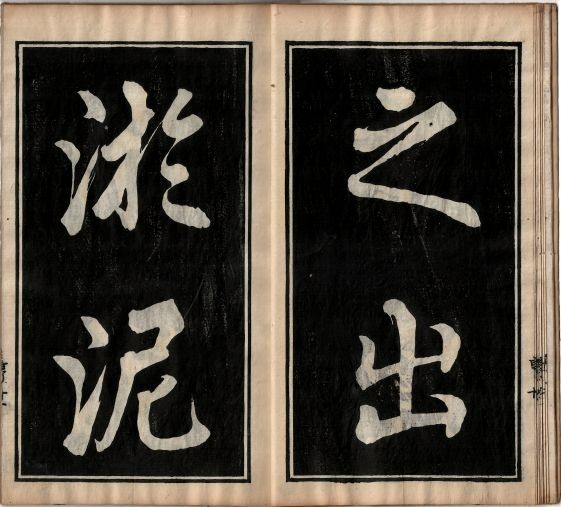 之出
淤泥